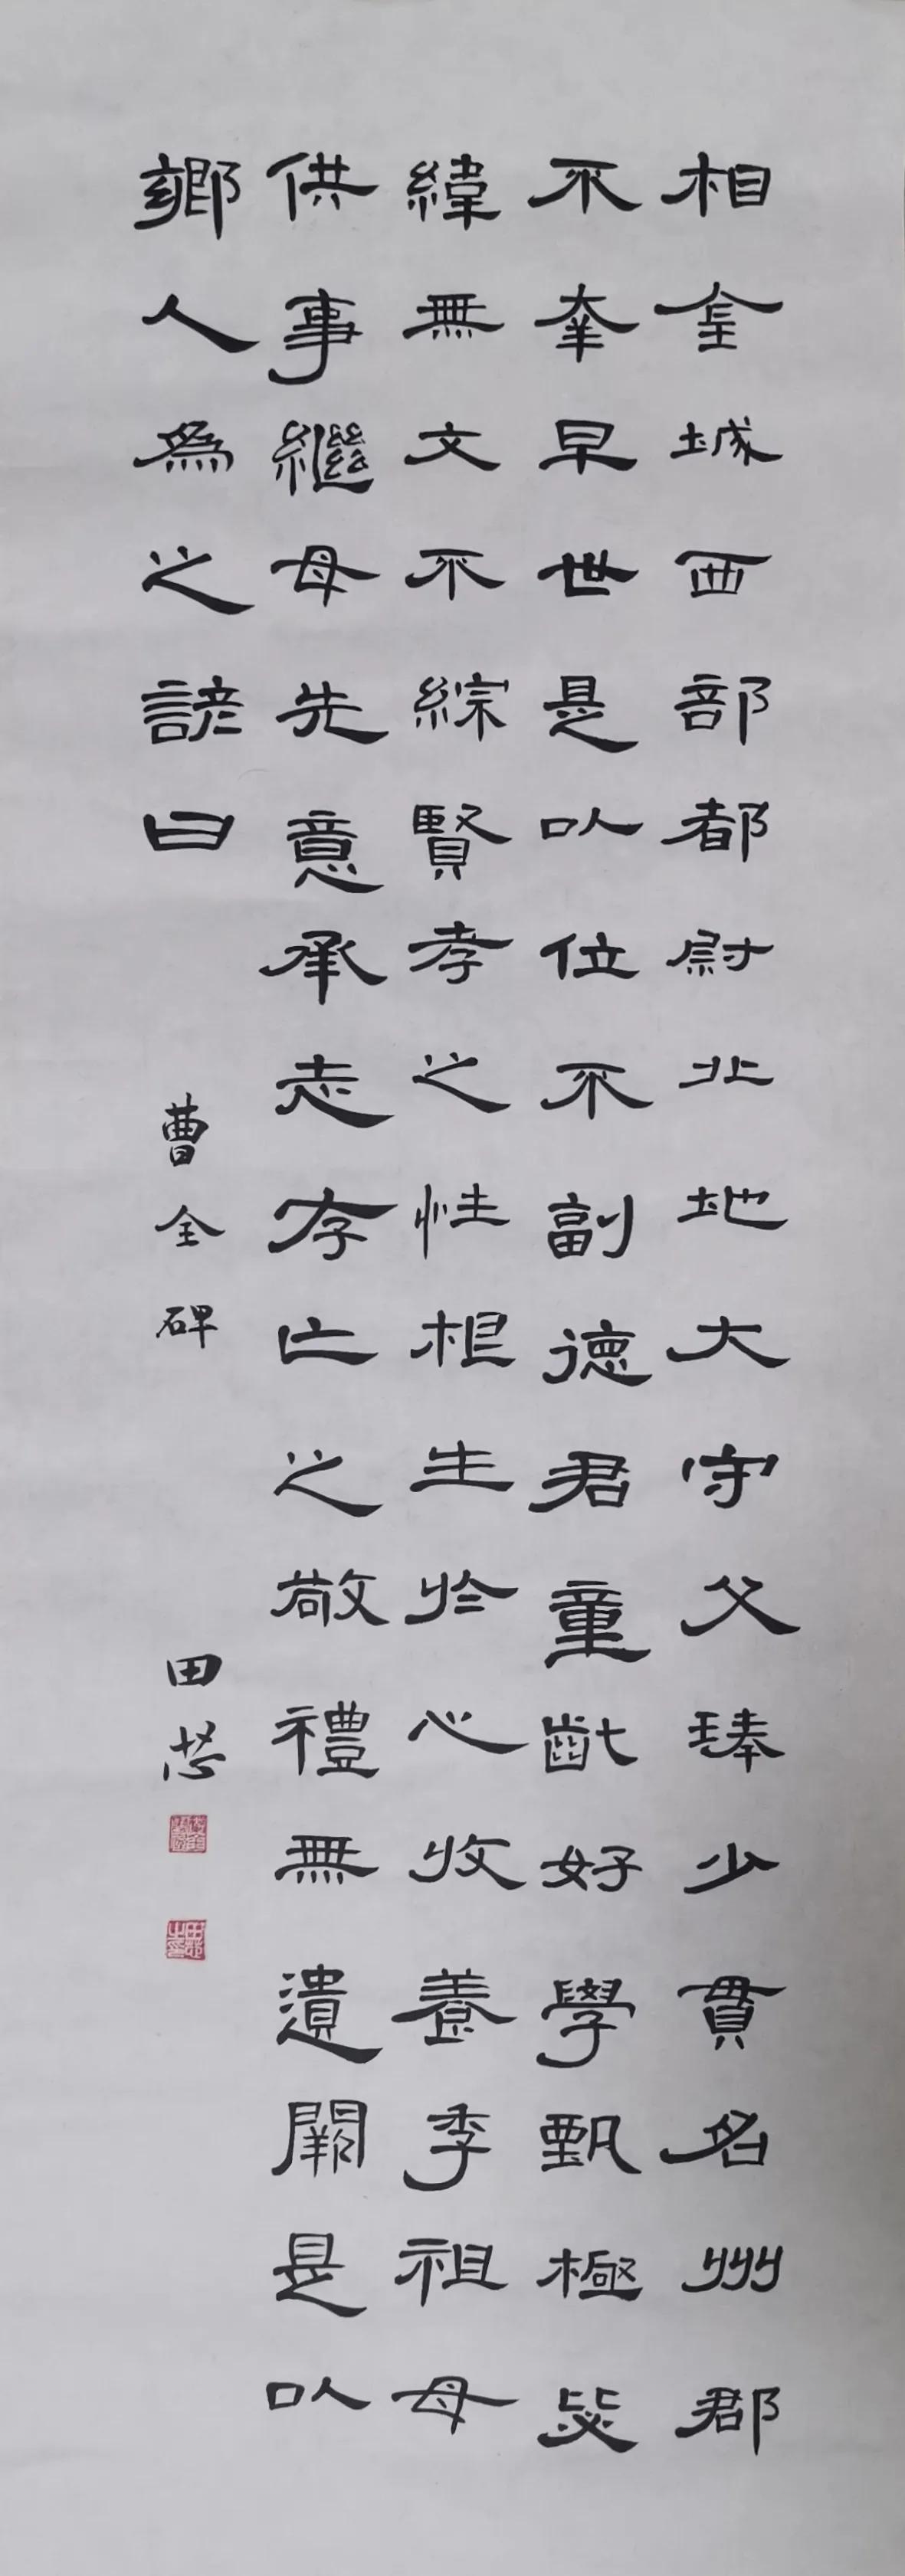 相金城西部都尉北地大守父琫少貫名州郡
不幸早世是以位不副德君童齔好學甄極毖
緯無文不綜賢孝之性根生於心收養季祖母
供事繼母先意承志存亡之敬禮無遺闕是以
鄉人為之諺曰
曹全碑
田